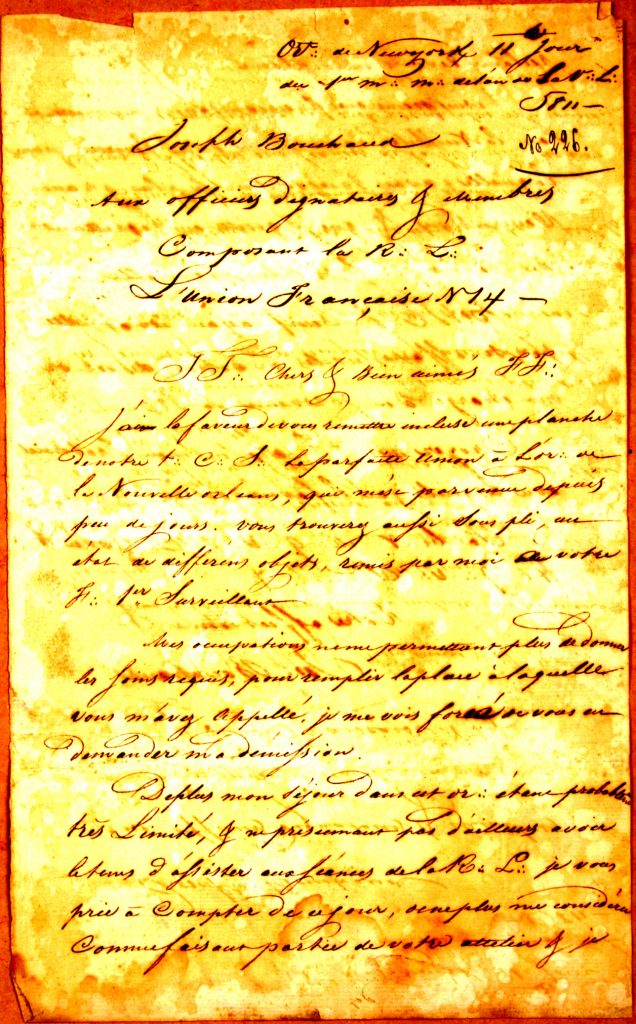 Or∴ de Newyork 11e Jour
du 1er m∴ m∴ de l'an de la V∴ L∴
5811 —
No 226.
Joseph Bouchaud
Aux officiers dignataires & Membres
Composant la R∴ L∴
L'Union Française N 14 —
T T∴ Chers & Bien aimés F F∴
J'ai la faveur de vous remettre incluse une planche
de notre t∴ C∴ S∴ La parfaite Union à L'or∴ de
la Nouvelle orleans, qui m'est parvenue depuis
peu de jours. vous trouverez aussi sous pli, un
état de differens objets, remis par moi a votre
F∴ 1er Surveillant
Mes occupations ne me permettant plus de donner
les soins requis, pour remplir la place à laquelle
vous m'avez appellé, je me vois forcé de vous en
demander ma démission.
Deplus mon séjour dans cet or∴ étant
très Limité, & ne présumant pas d'ailleurs avoir
le tems d'assister aux séances de la R∴ L∴ je vous
prie à Compter de ce jour, de ne plus me considérer
Comme faisant partie de votre attelier & je